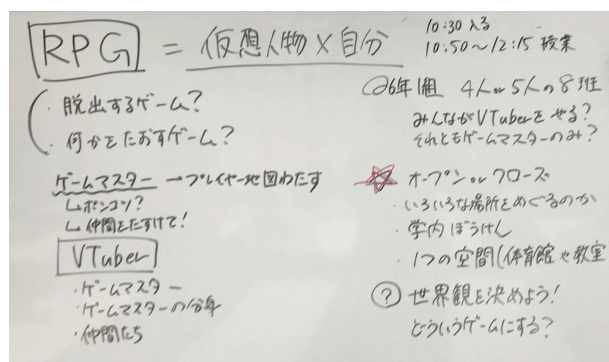 RPG = 仮想人物×自分
・脱出するゲーム?
・何かをたおすゲーム?
ゲームマスター →プレイヤー地図わたす
↳ポンコツ?
↳仲間をたすけて!
VTuber
・ゲームマスター
・ゲームマスターの分身
・仲間たち
10:30 入る
10:50〜12:15 授業
6年1組 4人or5人の8班
みんながVTuberをやる?
それともゲームマスターのみ?
☆ オープン or クローズ
・いろいろな場所をめぐるのか
・学内ぼうけん
・1つの空間(体育館や教室
? 世界観を決めよう!
どういうゲームにする?